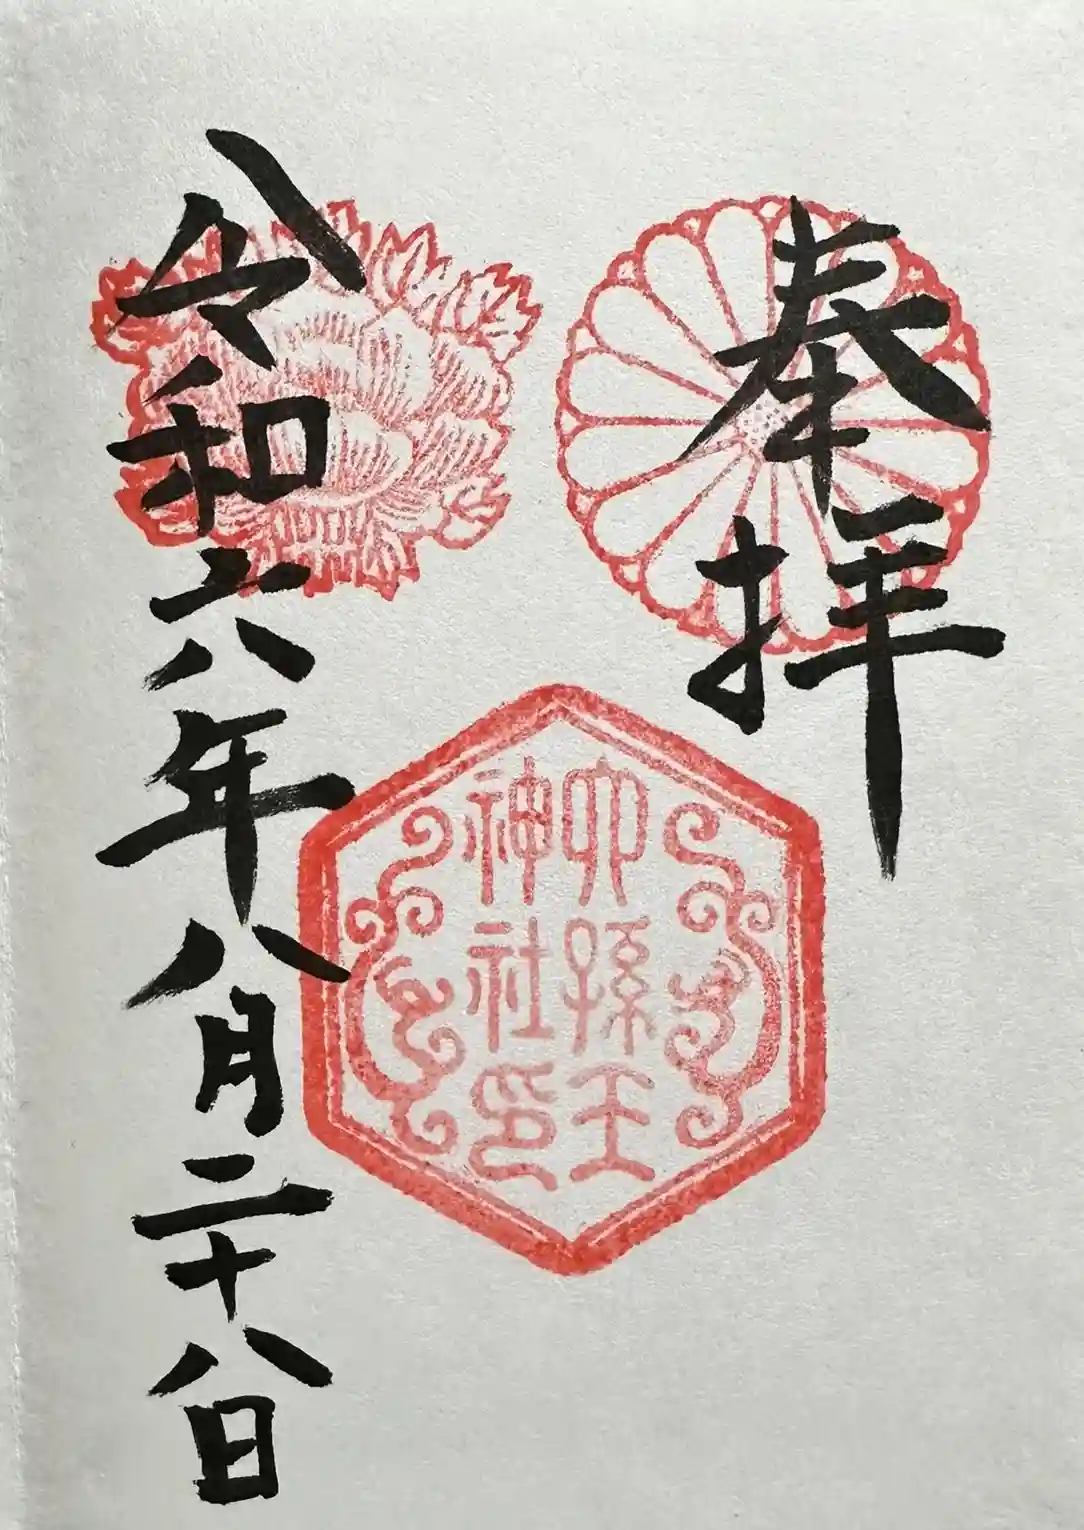 奉拝
六孫王
神社印
令和六年八月二十八日